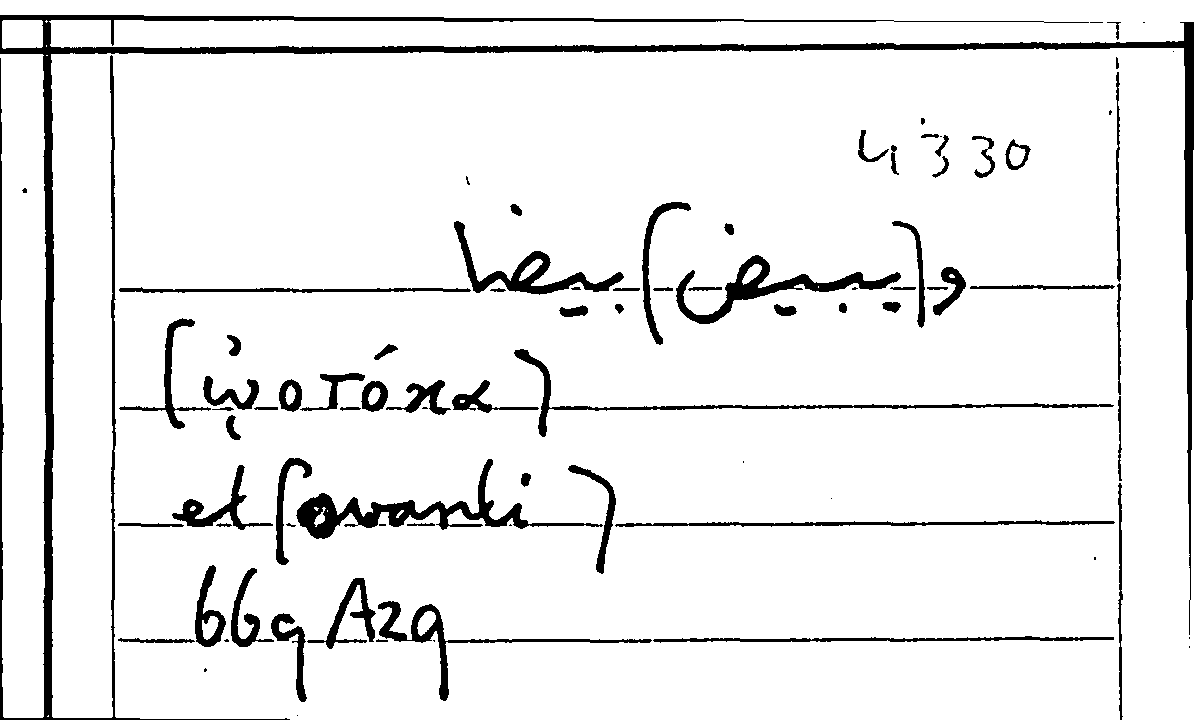 4330
و(يبيض)بيضا
(ᾠοτόκα)
et (ovanti)
669 A29